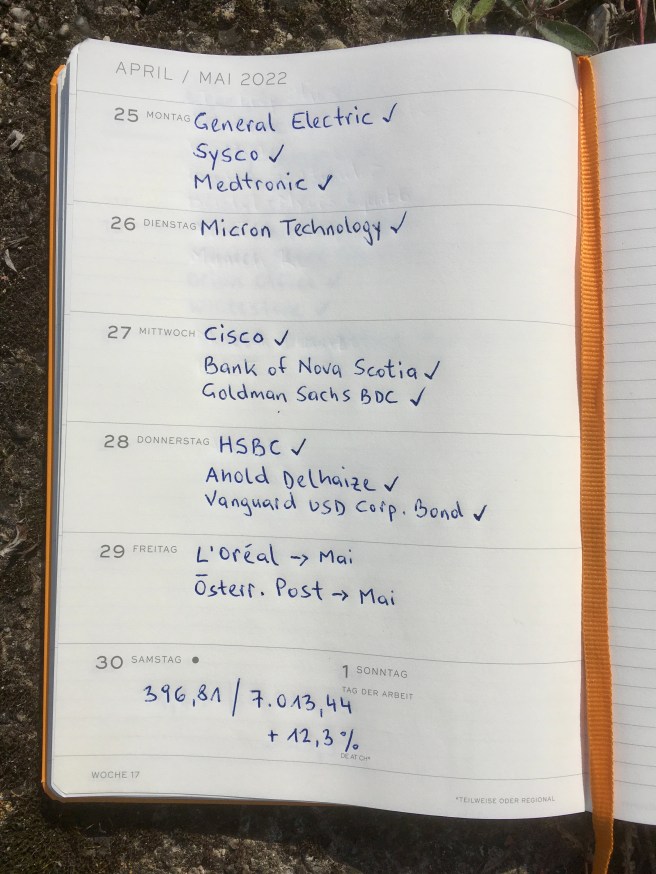 APRIL / MAI 2022
25 MONTAG General Electric ✓
Sysco ✓
Medtronic ✓
26 DIENSTAG Micron Technology ✓
27 MITTWOCH Cisco ✓
Bank of Nova Scotia ✓
Goldman Sachs BDC ✓
28 DONNERSTAG HSBC ✓
Ahold Delhaize ✓
Vanguard USD Corp. Bond ✓
29 FREITAG L'Oréal → Mai
Österr. Post → Mai
30 SAMSTAG ●
1 SONNTAG
TAG DER ARBEIT
396,81 / 7.013,44
+ 12,3 %
DE AT CH*
WOCHE 17
*TEILWEISE ODER REGIONAL